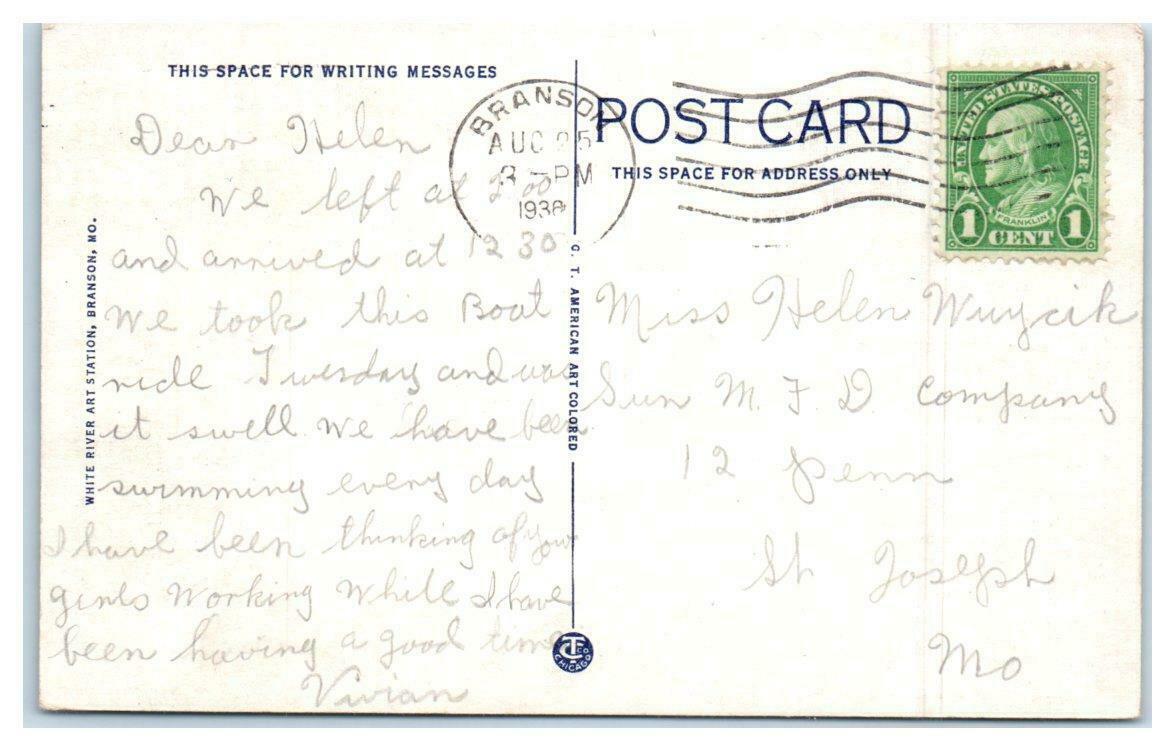 THIS SPACE FOR WRITING MESSAGES
Dear Helen
We left at 2:00
and arrived at 12 30
We took this Boat
ride Tuesday and was
it swell We have been
swimming every day
I have been thinking of you
girls Working While I have
been having a good time
Vivian
WHITE RIVER ART STATION, BRANSON, MO.
BRANSON
AUG 25
3 - PM
1938
C. T. AMERICAN ART COLORED
CHICAGO
POST CARD
THIS SPACE FOR ADDRESS ONLY
UNITED STATES POSTAGE
FRANKLIN
1 CENT 1
Miss Helen
Sun M. F D Company
12 Penn
St Joseph
Mo